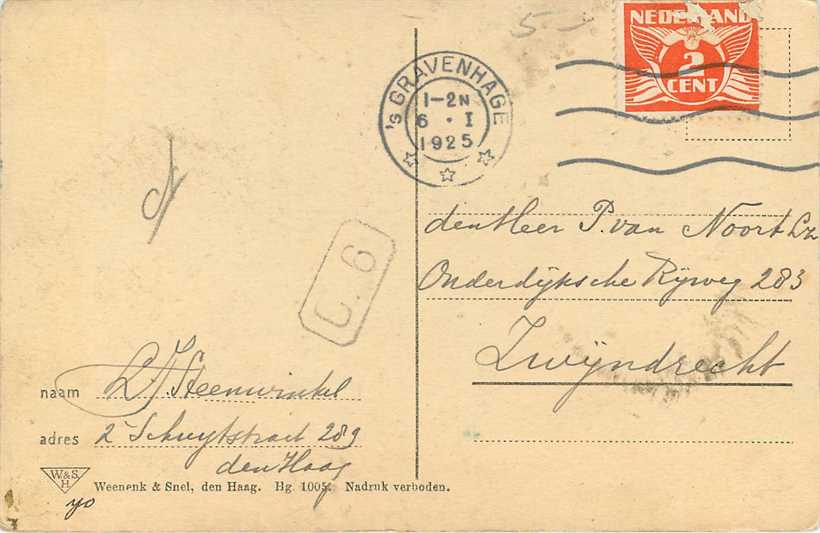 5
NEDERLAND
2
CENT
's GRAVENHAGE
1-2N
6 · I
1925
den Heer P. van Noort Lz
Onderdijksche Rijweg 283
Zwijndrecht
C. 6
naam L J Steenwinkel
adres 2e Schuytstraat 289
den Haag
W&S
H
Weenenk & Snel, den Haag. Hg 1005. Nadruk verboden.